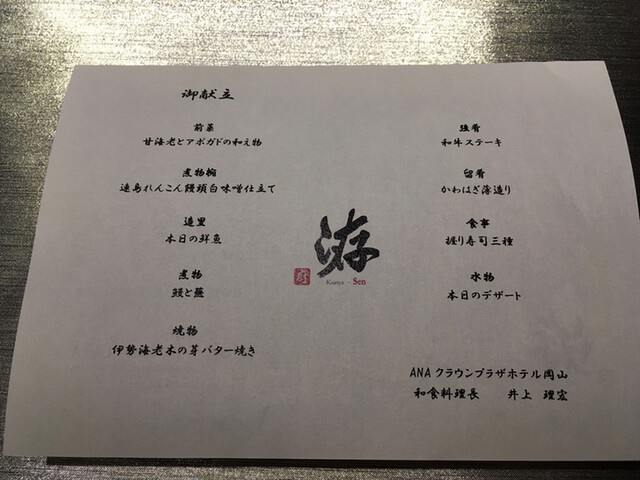 御献立
前菜
甘海老とアボガドの和え物
煮物椀
連島れんこん饅頭白味噌仕立て
造里
本日の鮮魚
煮物
鰻と蕪
焼物
伊勢海老木の芽バター焼き
游
Sen
強肴
和牛ステーキ
留肴
かわはぎ薄造り
食事
握り寿司三種
水物
本日のデザート
ANAクラウンプラザホテル岡山
和食料理長 井上 理宏